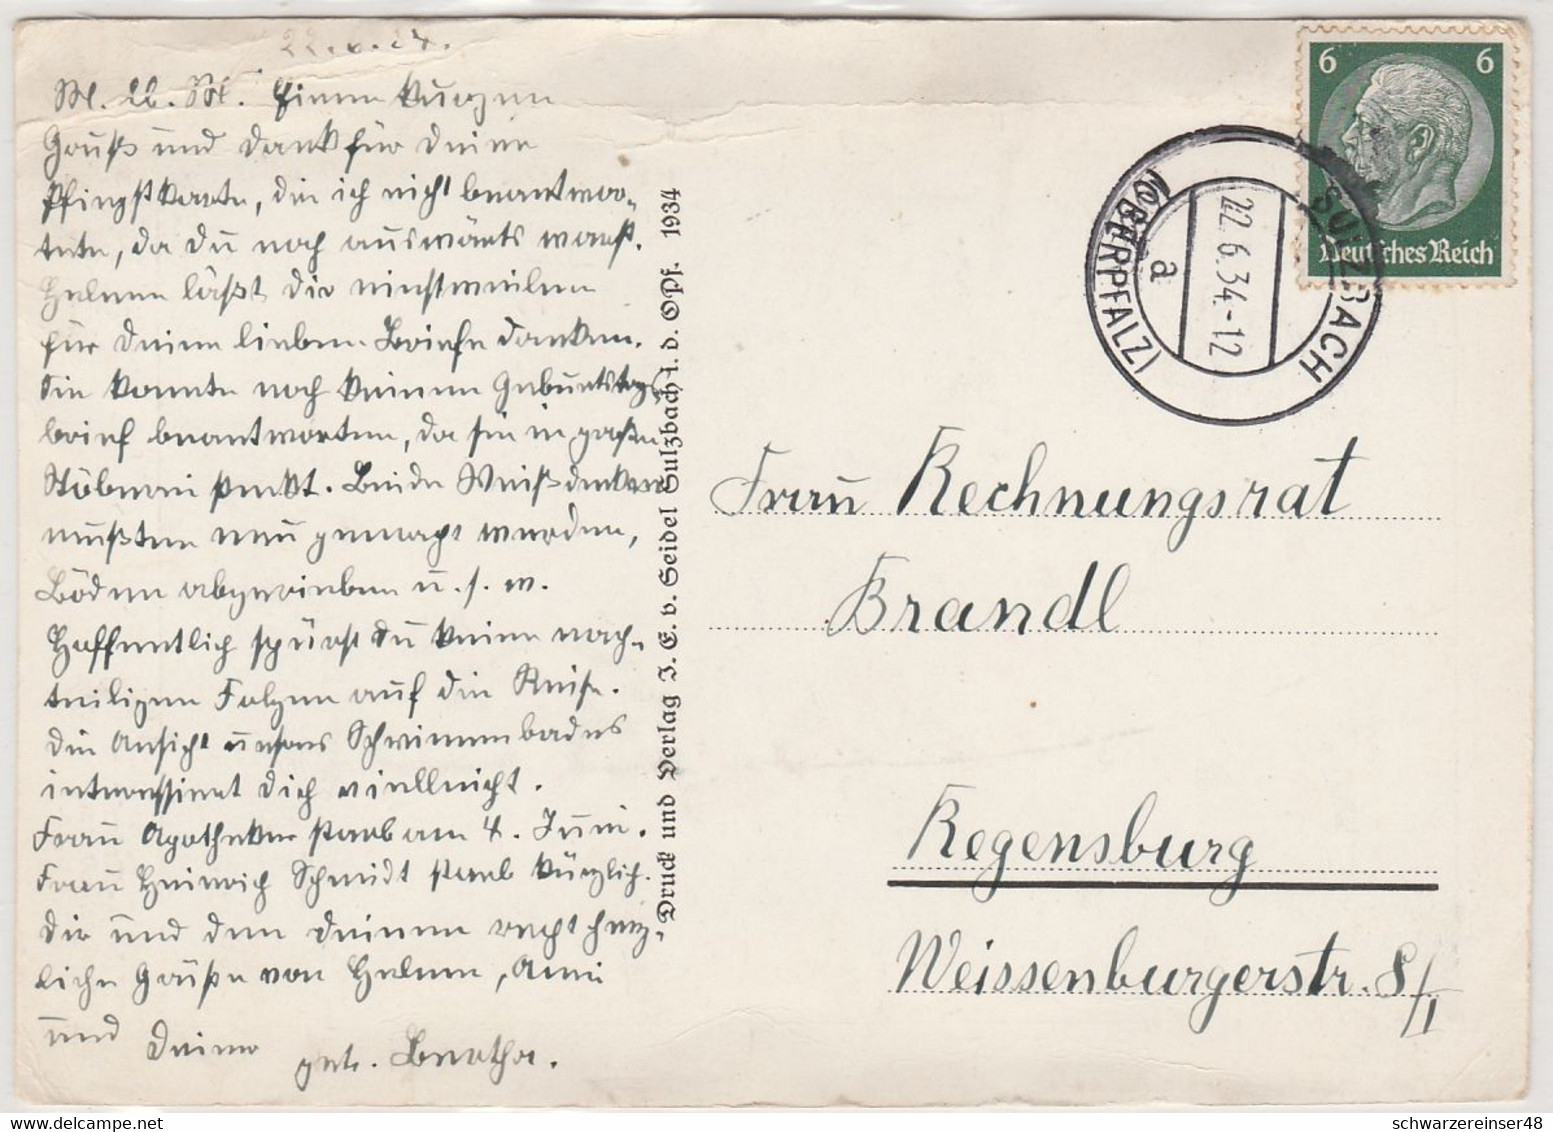 22.6.34.
M. lb. M. Einen kurzen
Gruß und Dank für Deine
Pfingstkarte, die ich nicht beantwor-
tete, da Du noch auswärts warst.
Helene läßt Dir einstweilen
für Deinen lieben Briefe danken.
Sie konnte noch keinen Geburtstags-
brief beantworten, da sie in großer
Stöberei steckt. Beide Weißdecken
mußten neu gemacht werden,
Böden abgerieben u. s. w.
Hoffentlich spürst Du keine nach-
teiligen Folgen auf die Reise.
Die Ansicht unsres Schwimmbades
interessieret Dich vielleicht.
Frau Apotheker starb am 4. Juni.
Frau Heinrich Schmidt starb kürzlich.
Dir und den Deinen recht herz-
liche Grüße von Helene,
und Deiner getr. Bertha.
Druck und Verlag J. E. v. Seidel Sulzbach i. d. Opf. 1934
6 6
Deutsches Reich
SULZBACH
(OBERPFALZ)
22.6.34.-12
a
Frau Rechnungsrat
Brandl
Regensburg
Weissenburgerstr. 8/I
schwarzereinser48